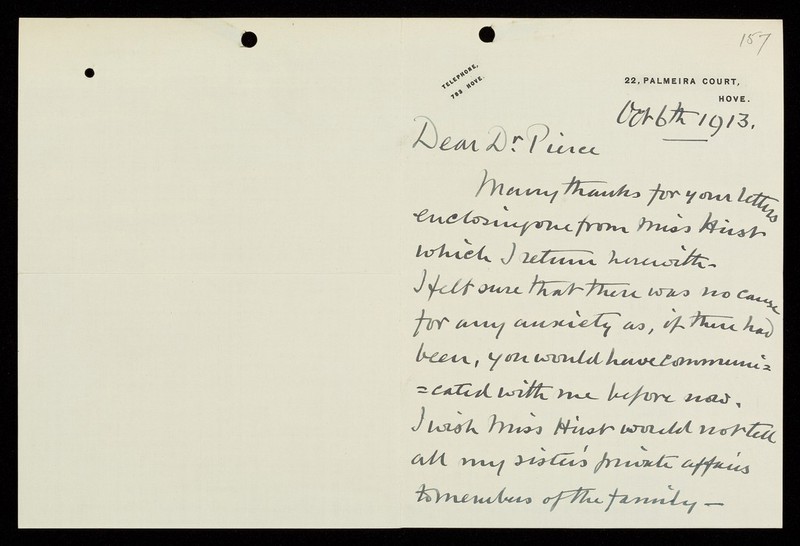 157
TELEPHONE,
783 HOVE.
22, PALMEIRA COURT,
HOVE.
Oct 6th 1913.
Dear Dr. Pierce
Many thanks for your letters
enclosing one from Miss Hirst
which I return herewith –
I felt sure that there was no cause
for any anxiety as, if there had
been, you would have communi=
=cated with me before now.
I wish Miss Hirst would not tell
all my sister's private affairs
to members of the family —